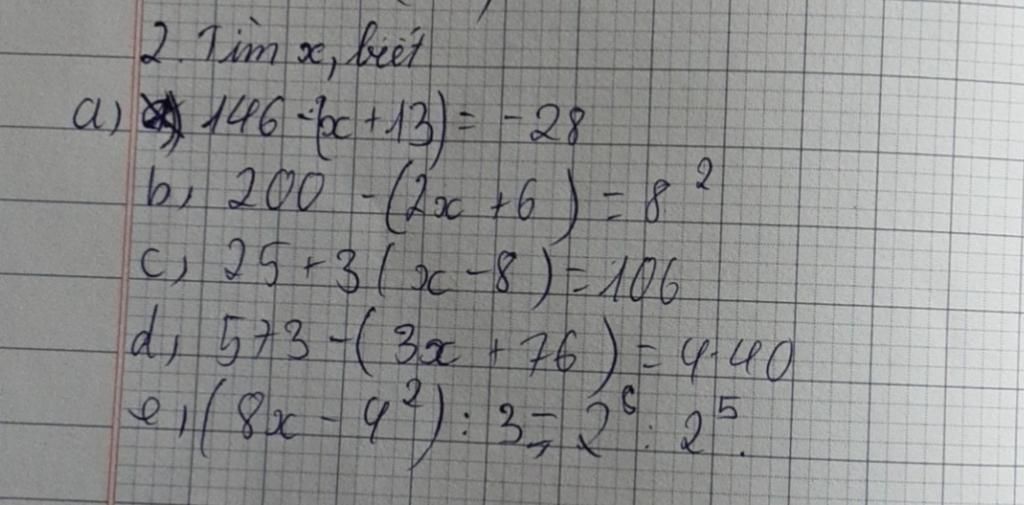 2. Tìm x, biết
a) 146 - (x + 13) = - 28
b, 200 - (2x + 6) = 8²
c, 25 + 3(x - 8) = 106
d, 573 - (3x + 76) = 4.40
e, (8x - 4²) : 3 = 2⁶ : 2⁵.